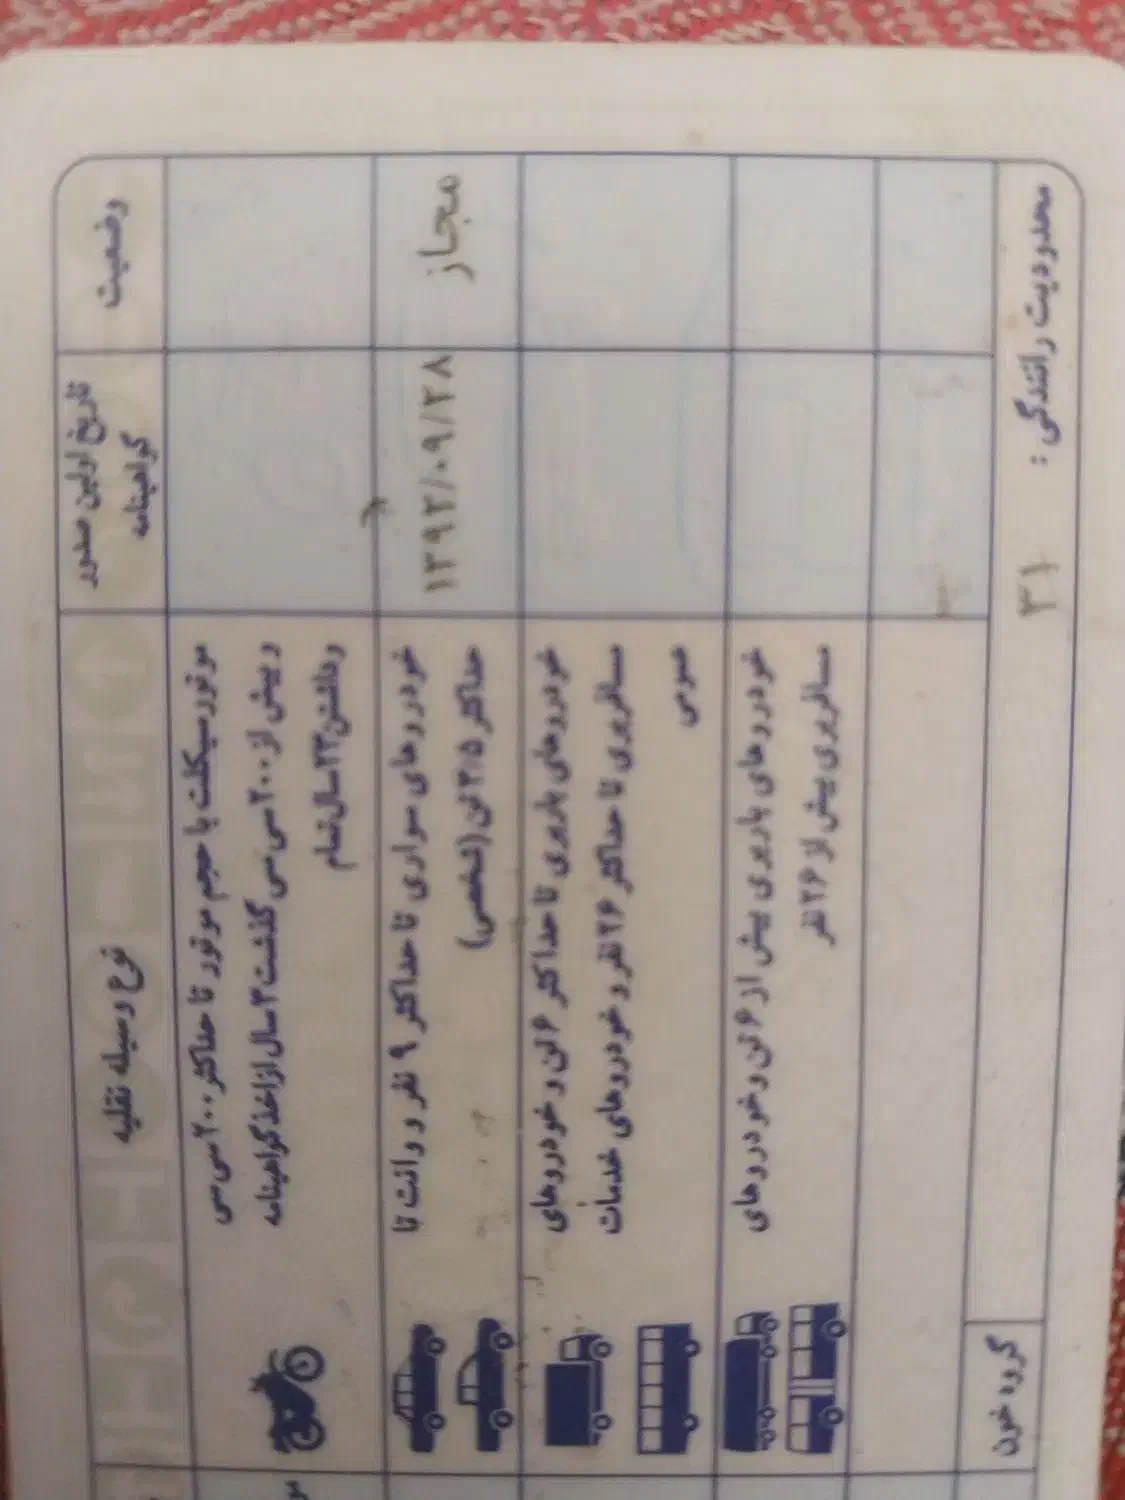 نوع وسیله نقلیه
تاریخ اولین صدور
گواهینامه
وضعیت
موتورسیکلت با حجم موتور تا حداکثر ۲۰۰ سی سی
و بیش از ۲۰۰ سی سی گذشت ۳ سال از اخذ گواهینامه
وداشتن ۲۳ سال تمام
خودروهای سواری تا حداکثر ۹ نفر و وانت تا
حداکثر ۳/۵ تن (شخصی)
۱۳۹۲/۰۹/۲۸
مجاز
خودروهای باربری تا حداکثر ۶ تن و خودروهای
مسافربری تا حداکثر ۲۶ نفر و خودروهای خدمات
عمومی
خودروهای باربری بیش از ۶ تن و خودروهای
مسافربری بیش از ۲۶ نفر
محدودیت رانندگی :
۳۱
گروه خون